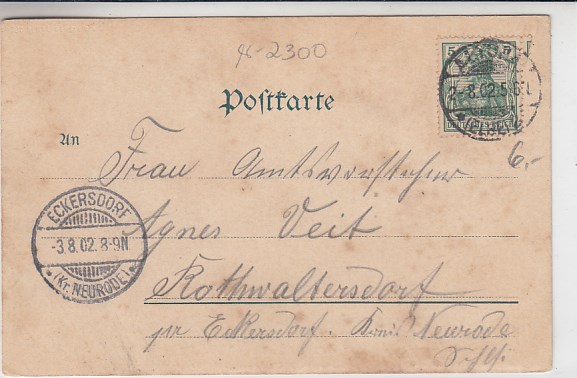 98-2300
Postkarte
5
2.8.02.5-6N
An
6.-
Frau Amtsvorsteher
Agnes Veit
Rothwaltersdorf
pr Eckersdorf. Kreis Neurode
Schls
ECKERSDORF
-3.8.02.8-9N
*(Kr. NEURODE)*